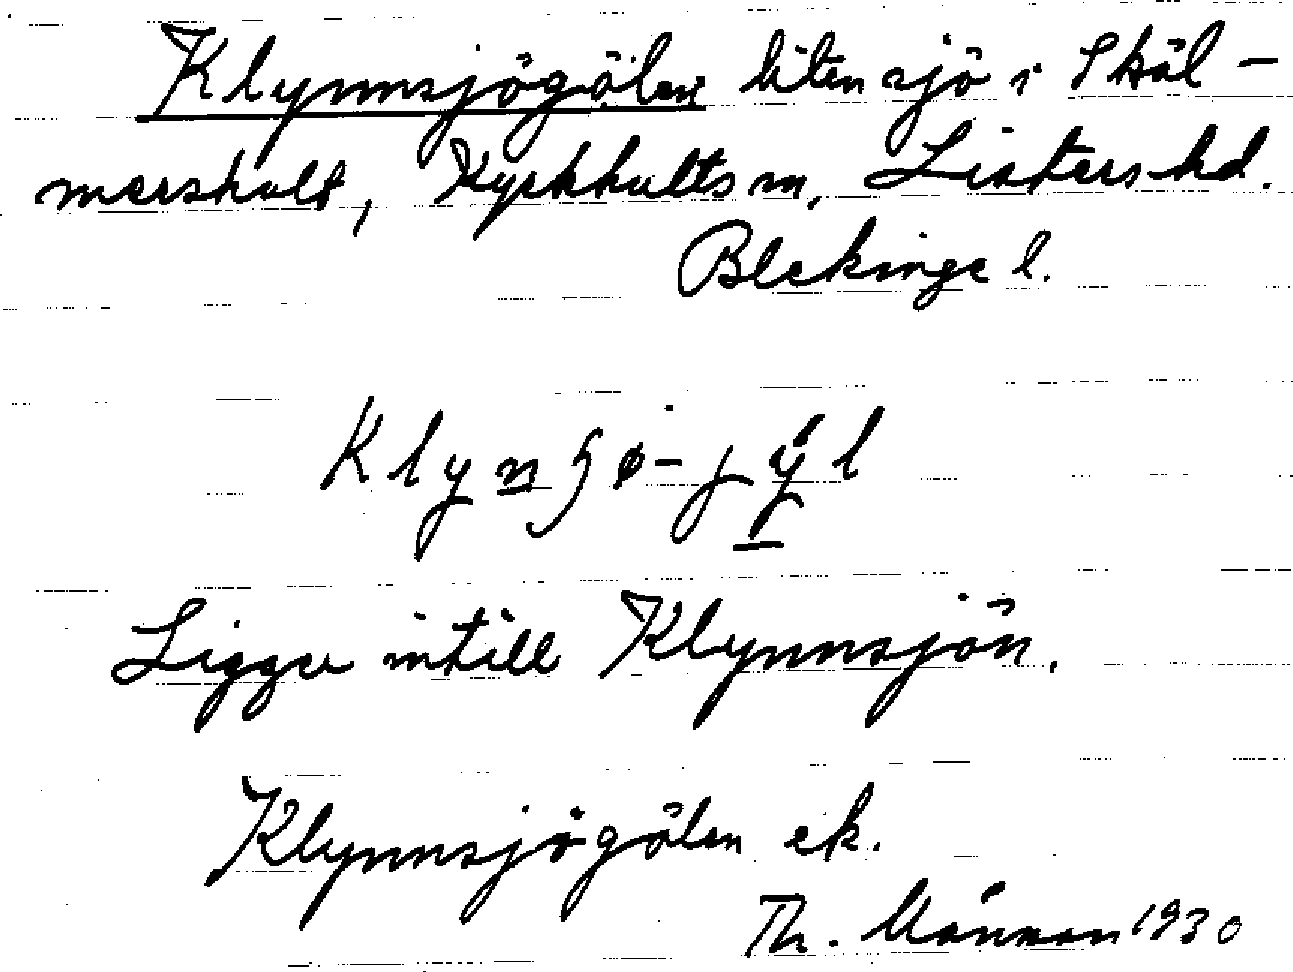 Klynnsjögölen liten sjö i Skäl-
mershult, Kyrkhults sn, Listers hd.
Blekinge l.
Klynʃø-jý̱l
Ligger intill Klynnsjön.
Klynnsjögölen ek.
Th. 1930